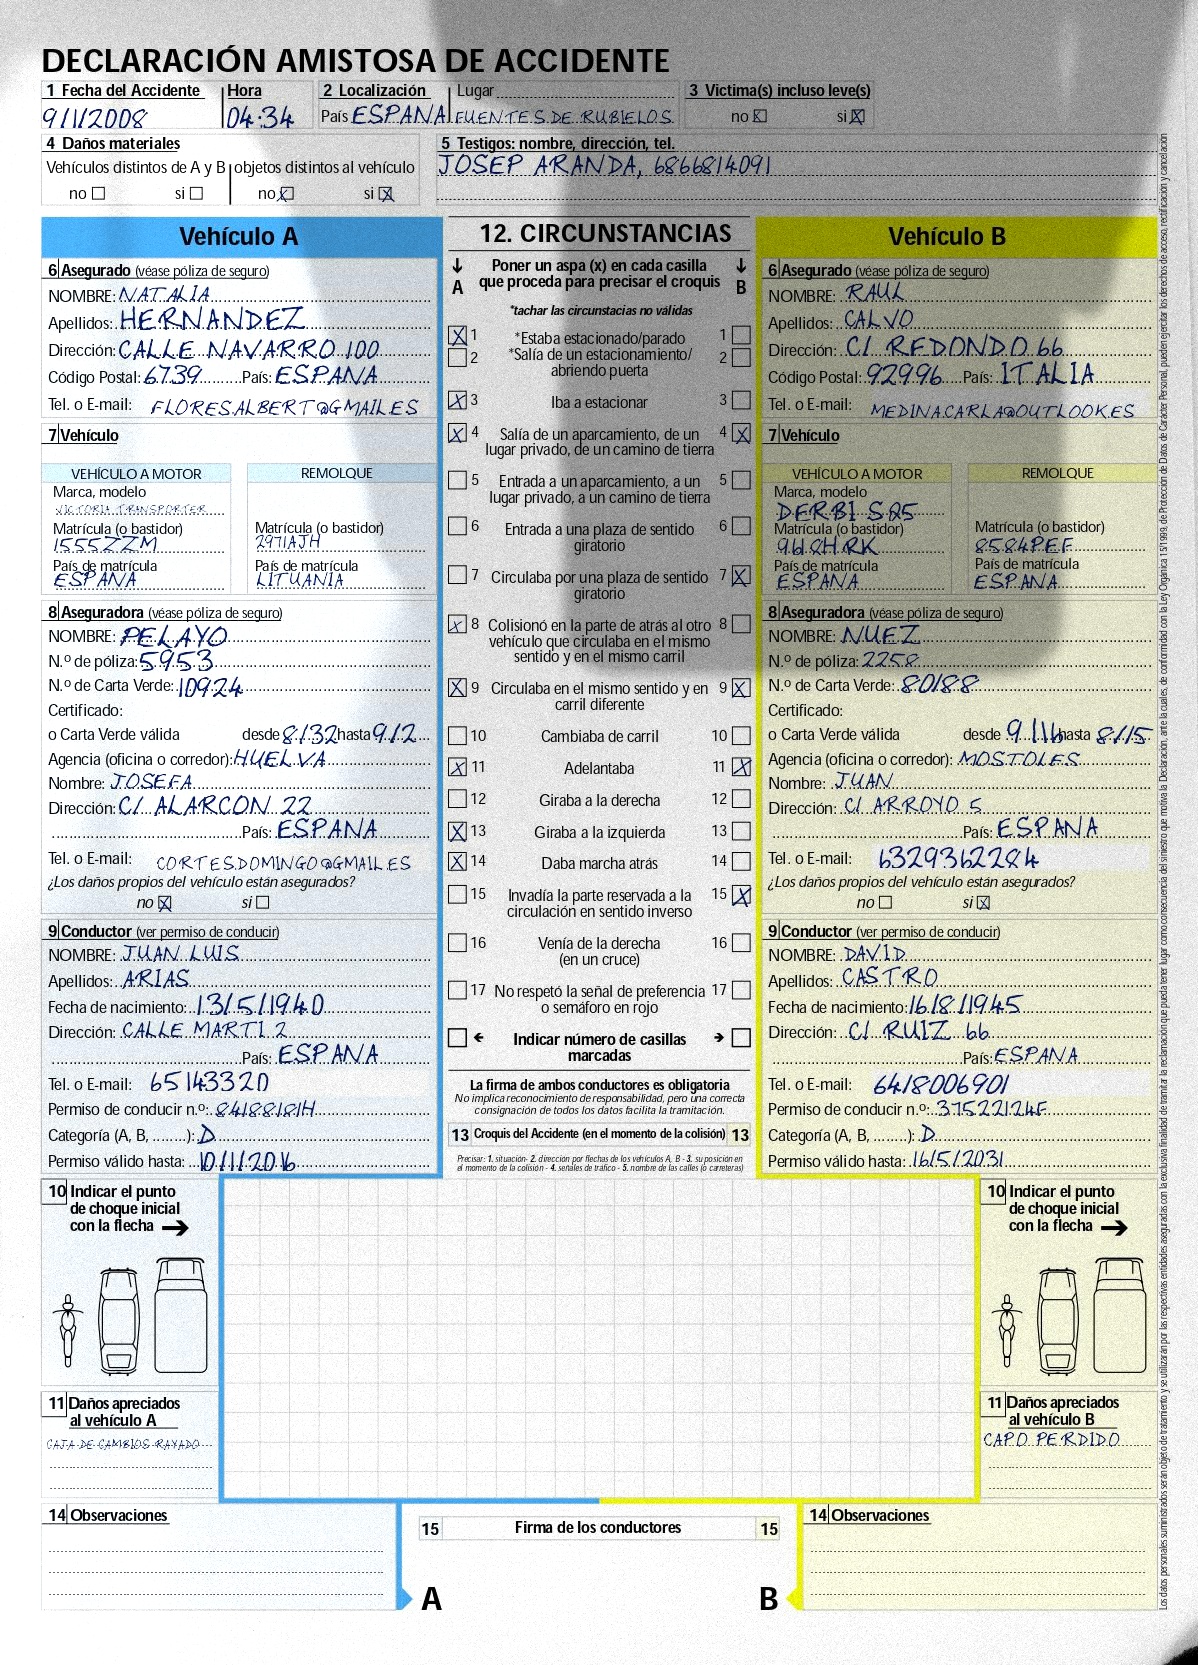 DECLARACIÓN AMISTOSA DE ACCIDENTE
1 Fecha del Accidente Hora 2 Localización Lugar 3 Victima(s) incluso leve(s)
9/1/2008 04:34 País ESPANA FUENTES DE RUBIELOS no si
4 Daños materiales
Vehículos distintos de A y B objetos distintos al vehículo
no si no si
5 Testigos: nombre, dirección, tel.
JOSEP ARANDA, 6866814091
Vehículo A
6 Asegurado (véase póliza de seguro)
NOMBRE: NATALIA
Apellidos: HERNANDEZ
Dirección: CALLE NAVARRO 100
Código Postal: 6739 País: ESPANA
Tel. o E-mail: FLORES.ALBERT@GMAIL.ES
7 Vehículo
VEHÍCULO A MOTOR REMOLQUE
Marca, modelo
VICTORIA TRANSPORTER
Matrícula (o bastidor) Matrícula (o bastidor)
1555ZZM 2971AJH
País de matrícula País de matrícula
ESPANA LITUANIA
8 Aseguradora (véase póliza de seguro)
NOMBRE: PELAYO
N.º de póliza: 5953
N.º de Carta Verde: 10924
Certificado:
o Carta Verde válida desde 8/32 hasta 9/2
Agencia (oficina o corredor): HUELVA
Nombre: JOSEFA
Dirección: C/ ALARCON 22
País: ESPANA
Tel. o E-mail: CORTES.DOMINGO@GMAIL.ES
¿Los daños propios del vehículo están asegurados?
no si
9 Conductor (ver permiso de conducir)
NOMBRE: JUAN LUIS
Apellidos: ARIAS
Fecha de nacimiento: 13/5/1940
Dirección: CALLE MARTI 2
País: ESPANA
Tel. o E-mail: 65143320
Permiso de conducir n.º: 84188181H
Categoría (A, B, ........): D
Permiso válido hasta: 10/1/2016
12. CIRCUNSTANCIAS
A B
Poner un aspa (x) en cada casilla
que proceda para precisar el croquis
*tachar las circunstacias no válidas
1 *Estaba estacionado/parado 1
2 *Salía de un estacionamiento/ 2
abriendo puerta
3 Iba a estacionar 3
4 Salía de un aparcamiento, de un 4
lugar privado, de un camino de tierra
5 Entrada a un aparcamiento, a un 5
lugar privado, a un camino de tierra
6 Entrada a una plaza de sentido 6
giratorio
7 Circulaba por una plaza de sentido 7
giratorio
8 Colisionó en la parte de atrás al otro 8
vehículo que circulaba en el mismo
sentido y en el mismo carril
9 Circulaba en el mismo sentido y en 9
carril diferente
10 Cambiaba de carril 10
11 Adelantaba 11
12 Giraba a la derecha 12
13 Giraba a la izquierda 13
14 Daba marcha atrás 14
15 Invadía la parte reservada a la 15
circulación en sentido inverso
16 Venía de la derecha 16
(en un cruce)
17 No respetó la señal de preferencia 17
o semáforo en rojo
Indicar número de casillas
marcadas
La firma de ambos conductores es obligatoria
No implica reconocimiento de responsabilidad, pero una correcta
consignación de todos los datos facilita la tramitación.
13 Croquis del Accidente (en el momento de la colisión) 13
Precisar: 1. situación- 2. dirección por flechas de los vehículos A, B - 3. su posición en
el momento de la colisión - 4. señales de tráfico - 5. nombre de las calles (o carreteras)
Vehículo B
6 Asegurado (véase póliza de seguro)
NOMBRE: RAUL
Apellidos: CALVO
Dirección: C/ REDONDO 66
Código Postal: 92996 País: ITALIA
Tel. o E-mail: MEDINA.CARLA@OUTLOOK.ES
7 Vehículo
VEHÍCULO A MOTOR REMOLQUE
Marca, modelo
DERBI SQ5
Matrícula (o bastidor) Matrícula (o bastidor)
9618HRK 8584PEF
País de matrícula País de matrícula
ESPANA ESPANA
8 Aseguradora (véase póliza de seguro)
NOMBRE: NUEZ
N.º de póliza: 2258
N.º de Carta Verde: 80188
Certificado:
o Carta Verde válida desde 9/16 hasta 8/15
Agencia (oficina o corredor): MOSTOLES
Nombre: JUAN
Dirección: C/ ARROYO 5
País: ESPANA
Tel. o E-mail: 6329362284
¿Los daños propios del vehículo están asegurados?
no si
9 Conductor (ver permiso de conducir)
NOMBRE: DAVID
Apellidos: CASTRO
Fecha de nacimiento: 16/8/1945
Dirección: C/ RUIZ 66
País: ESPANA
Tel. o E-mail: 6418006901
Permiso de conducir n.º: 37522124F
Categoría (A, B, ........): D
Permiso válido hasta: 16/5/2031
10 Indicar el punto
de choque inicial
con la flecha
11 Daños apreciados
al vehículo A
CAJA DE CAMBIOS RAYADO
10 Indicar el punto
de choque inicial
con la flecha
11 Daños apreciados
al vehículo B
CAPO PERDIDO
14 Observaciones
15 Firma de los conductores 15
A B
14 Observaciones
Los datos personales suministrados serán objeto de tratamiento y se utilizarán por las respectivas entidades aseguradas con la exclusiva finalidad de tramitar la reclamación que pueda tener lugar como consecuencia del siniestro que motiva la Declaración, ante la cuales, de conformidad con la Ley Orgánica 15/1999, de Protección de Datos de Carácter Personal, pueden ejercitar los derechos de acceso, rectificación y cancelación